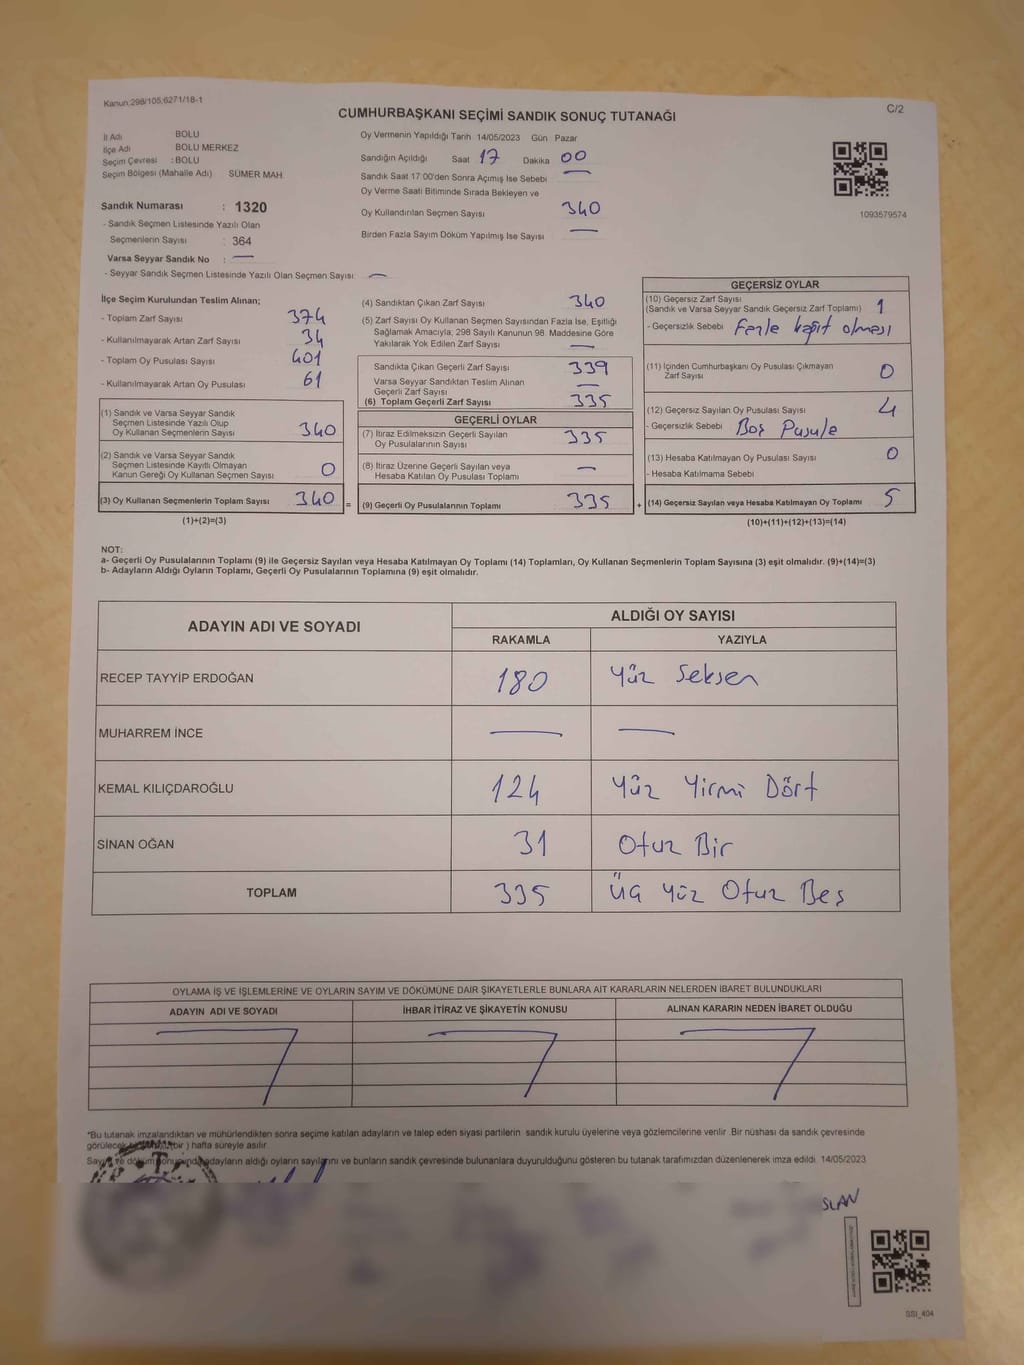 Kanun;298/105;6271/18-1
C/2
CUMHURBAŞKANI SEÇİMİ SANDIK SONUÇ TUTANAĞI
İl Adı BOLU
İlçe Adı BOLU MERKEZ
Seçim Çevresi : BOLU
Seçim Bölgesi (Mahalle Adı) SÜMER MAH
Sandık Numarası : 1320
- Sandık Seçmen Listesinde Yazılı Olan
Seçmenlerin Sayısı : 364
Varsa Seyyar Sandık No : —
- Seyyar Sandık Seçmen Listesinde Yazılı Olan Seçmen Sayısı: —
Oy Vermenin Yapıldığı Tarih 14/05/2023 Gün Pazar
Sandığın Açıldığı Saat 17 Dakika 00
Sandık Saat 17:00'den Sonra Açımış İse Sebebi —
Oy Verme Saati Bitiminde Sırada Bekleyen ve
Oy Kullandırılan Seçmen Sayısı 340
Birden Fazla Sayım Döküm Yapılmış İse Sayısı —
1093579574
İlçe Seçim Kurulundan Teslim Alınan;
- Toplam Zarf Sayısı 374
- Kullanılmayarak Artan Zarf Sayısı 34
- Toplam Oy Pusulası Sayısı 401
- Kullanılmayarak Artan Oy Pusulası 61
(1) Sandık ve Varsa Seyyar Sandık
Seçmen Listesinde Yazılı Olup
Oy Kullanan Seçmenlerin Sayısı 340
(2) Sandık ve Varsa Seyyar Sandık
Seçmen Listesinde Kayıtlı Olmayan
Kanun Gereği Oy Kullanan Seçmen Sayısı 0
(3) Oy Kullanan Seçmenlerin Toplam Sayısı 340 =
(1)+(2)=(3)
(4) Sandıktan Çıkan Zarf Sayısı 340
(5) Zarf Sayısı Oy Kullanan Seçmen Sayısından Fazla İse, Eşitliği
Sağlamak Amacıyla, 298 Sayılı Kanunun 98. Maddesine Göre
Yakılarak Yok Edilen Zarf Sayısı —
Sandıkta Çıkan Geçerli Zarf Sayısı 339
Varsa Seyyar Sandıktan Teslim Alınan
Geçerli Zarf Sayısı —
(6) Toplam Geçerli Zarf Sayısı 335
GEÇERLİ OYLAR
(7) İtiraz Edilmeksizin Geçerli Sayılan
Oy Pusulalarının Sayısı 335
(8) İtiraz Üzerine Geçerli Sayılan veya
Hesaba Katılan Oy Pusulası Toplamı —
(9) Geçerli Oy Pusulalarının Toplamı 335 +
GEÇERSİZ OYLAR
(10) Geçersiz Zarf Sayısı
(Sandık ve Varsa Seyyar Sandık Geçersiz Zarf Toplamı) 1
- Geçersizlik Sebebi Fazla kağıt olması
(11) İçinden Cumhurbaşkanı Oy Pusulası Çıkmayan
Zarf Sayısı 0
(12) Geçersiz Sayılan Oy Pusulası Sayısı 4
- Geçersizlik Sebebi Boş Pusule
(13) Hesaba Katılmayan Oy Pusulası Sayısı 0
- Hesaba Katılmama Sebebi
(14) Geçersiz Sayılan veya Hesaba Katılmayan Oy Toplamı 5
(10)+(11)+(12)+(13)=(14)
NOT:
a- Geçerli Oy Pusulalarının Toplamı (9) ile Geçersiz Sayılan veya Hesaba Katılmayan Oy Toplamı (14) Toplamları, Oy Kullanan Seçmenlerin Toplam Sayısına (3) eşit olmalıdır. (9)+(14)=(3)
b- Adayların Aldığı Oyların Toplamı, Geçerli Oy Pusulalarının Toplamına (9) eşit olmalıdır.
ADAYIN ADI VE SOYADI
ALDIĞI OY SAYISI
RAKAMLA YAZIYLA
RECEP TAYYİP ERDOĞAN 180 Yüz Seksen
MUHARREM İNCE — —
KEMAL KILIÇDAROĞLU 124 Yüz Yirmi Dört
SİNAN OĞAN 31 Otuz Bir
TOPLAM 335 Üç Yüz Otuz Beş
OYLAMA İŞ VE İŞLEMLERİNE VE OYLARIN SAYIM VE DÖKÜMÜNE DAİR ŞİKAYETLERLE BUNLARA AİT KARARLARIN NELERDEN İBARET BULUNDUKLARI
ADAYIN ADI VE SOYADI İHBAR İTİRAZ VE ŞİKAYETİN KONUSU ALINAN KARARIN NEDEN İBARET OLDUĞU
*Bu tutanak imzalandıktan ve mühürlendikten sonra seçime katılan adayların ve talep eden siyasi partilerin sandık kurulu üyelerine veya gözlemcilerine verilir. Bir nüshası da sandık çevresinde
görülecek bir) hafta süreyle asılır.
Sayım ve döküm sonucunda adayların aldığı oyların sayılarını ve bunların sandık çevresinde bulunanlara duyurulduğunu gösteren bu tutanak tarafımızdan düzenlenerek imza edildi. 14/05/2023
SLAN
SSI_404